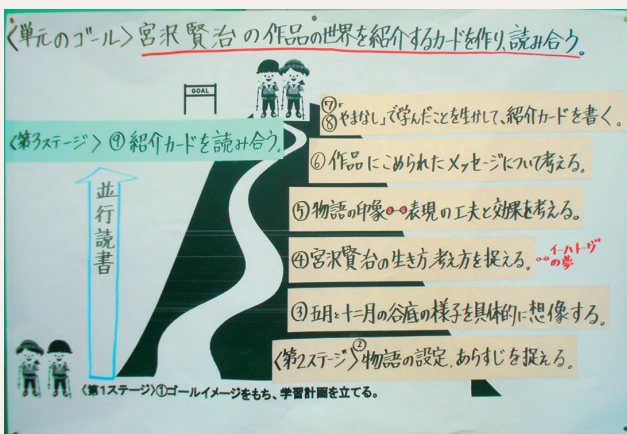 〈単元のゴール〉宮沢賢治の作品の世界を紹介するカードを作り、読み合う。
GOAL
⑦⑧「やまなし」で学んだことを生かして、紹介カードを書く。
〈第3ステージ〉⑨紹介カードを読み合う。
⑥作品にこめられたメッセージについて考える。
並行読書
⑤物語の印象 表現の工夫と効果を考える。
④宮沢賢治の生き方、考え方を捉える。
イーハトーヴの夢
③五月と十二月の谷底の様子を具体的に想像する。
〈第2ステージ〉②物語の設定、あらすじを捉える。
〈第1ステージ〉①ゴールイメージをもち、学習計画を立てる。